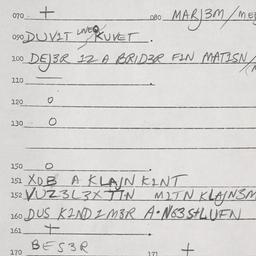 070 + 080 MARJ3M/ME
090 DUVIT LIVEP KUVET.
100 DEJ3R IZ A BRID3R FIN MATISN/
110
120 o
130 o
150 o
151 XOB A KLAJN KINT
152 VUZ3L3X IIN MITN KLAJN3M
160 DUS KIND IM3R A· NG3SHLUFN
161 +
170 BES3R 171 +